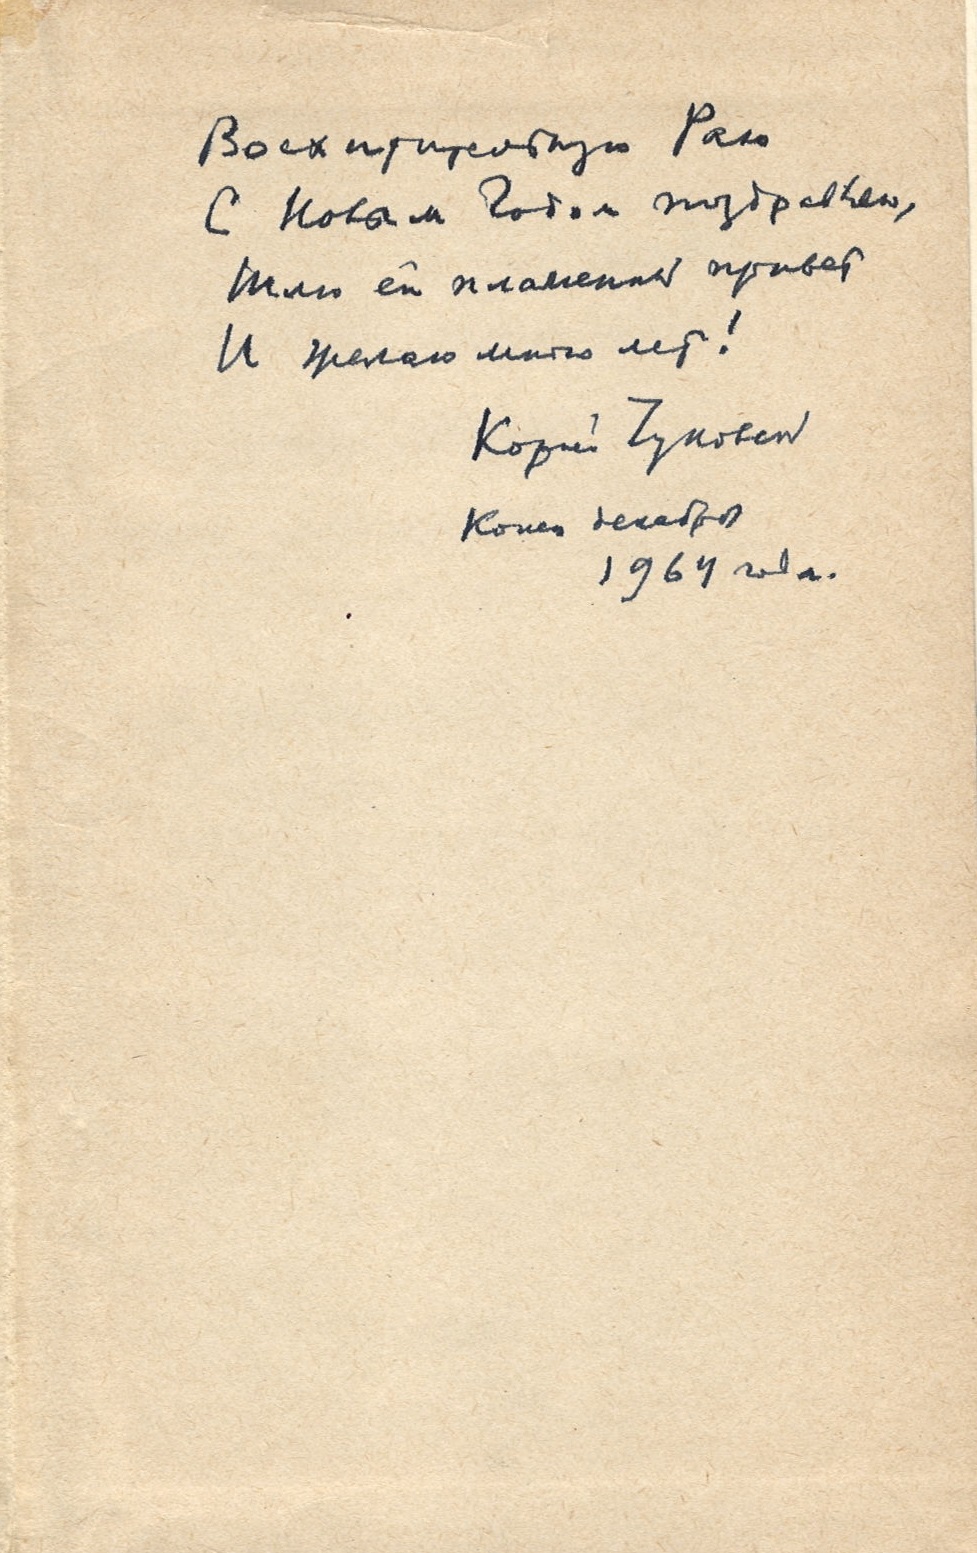 Восхитительную Раю
С Новым Годом поздравляю,
Шлю ей пламенный привет
И желаю много лет!
Корней Чуковский
Конец декабря
1964 года.